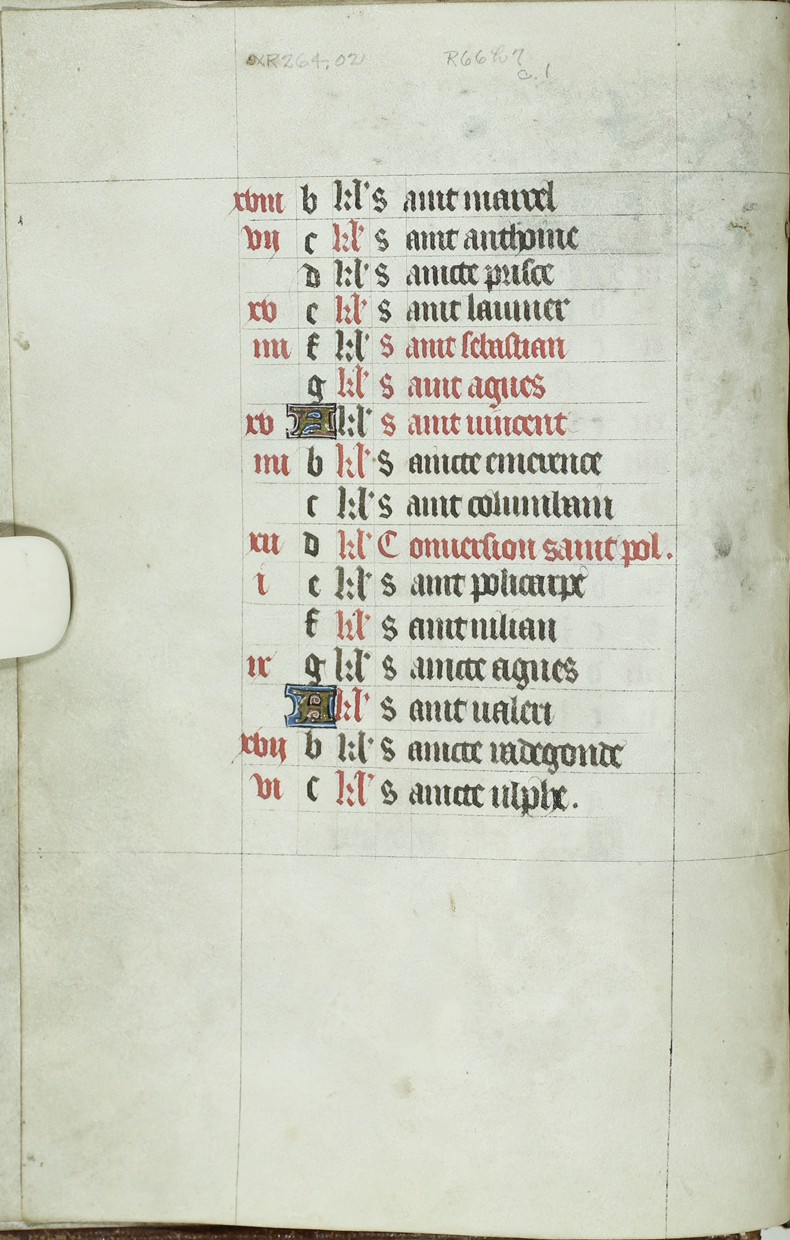 R264.02 R66h7
c.1
xviii b kl' S aint marcel
vii c kl' S aint anthoine
d kl' S aincte prisce
xv e kl' S aint laumer
iiii f kl' S aint sebastian
g kl' S aint agnes
xv A kl' S aint uincent
iiii b kl' S aincte emerence
c kl' S aint columbain
xii d kl' C onuersion saint pol.
i e kl' S aint policarpe
f kl' S aint iulian
ix g kl' S aincte agnes
A kl' S aint ualeri
xvii b kl' S aincte radegonde
vi c kl' S aincte ulphe.